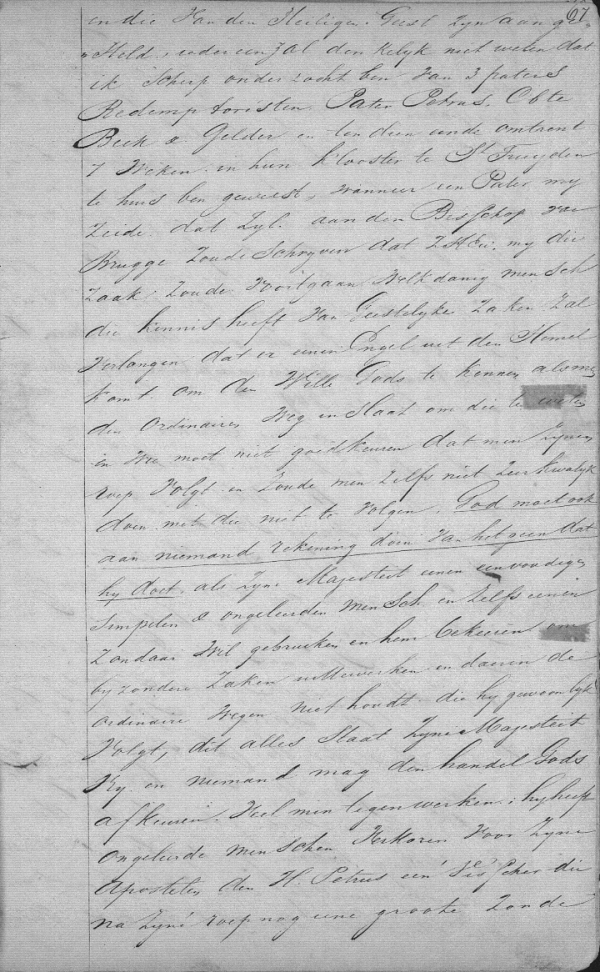 67
en die van den Heiligen Geest zyn aange=
steld, ieder een zal denkelyk niet weten dat
ik scherp onderzocht ben van 3 paters
Redemptoristen Pater Petrus, Obte
Beek & Gelder en ten dien einde omtrent
7 Weken in hun klooster te St Truyden
te huis ben geweest, wanneer een Pater my
zeide dat zyl. aan den Bisschop van
Brugge zoude schryven dat Z. my die
zaak zoude voortgaan, Welkdanig mensch
die kennis heeft van Geestelyke Zaken zal
verlangen dat er eenen Engel uit den Hemel
komt om den Wille Gods te kennen, als
den ordinairen Weg en Staat om die te weten
en Wie moet niet goedkeuren dat men zynen
roep volgt en zoude men zelfs niet zeer kwalyk
doen met die niet te volgen. God moet ook
aan niemand rekening doen van het geen dat
hy doet, als zyne Majesteit eenen eenvoudigen
simpelen & ongeleerden mensch en zelfs eenen
zondaar Wil gebruiken en hem bekeeren om
byzondere Zaken uittewerken en daerin de
ordinaire Wegen niet houdt die hy gewoonlyk
volgt, dit alles Staat Zyne Majesteit
vry en niemand mag den handel Gods
afkeuren, veel min tegenwerken; hy heeft
ongeleerde menschen verkoren voor zyne
Apostelen, den H. Petrus een' Visscher die
na zyne' roep nog eene groote Zonde